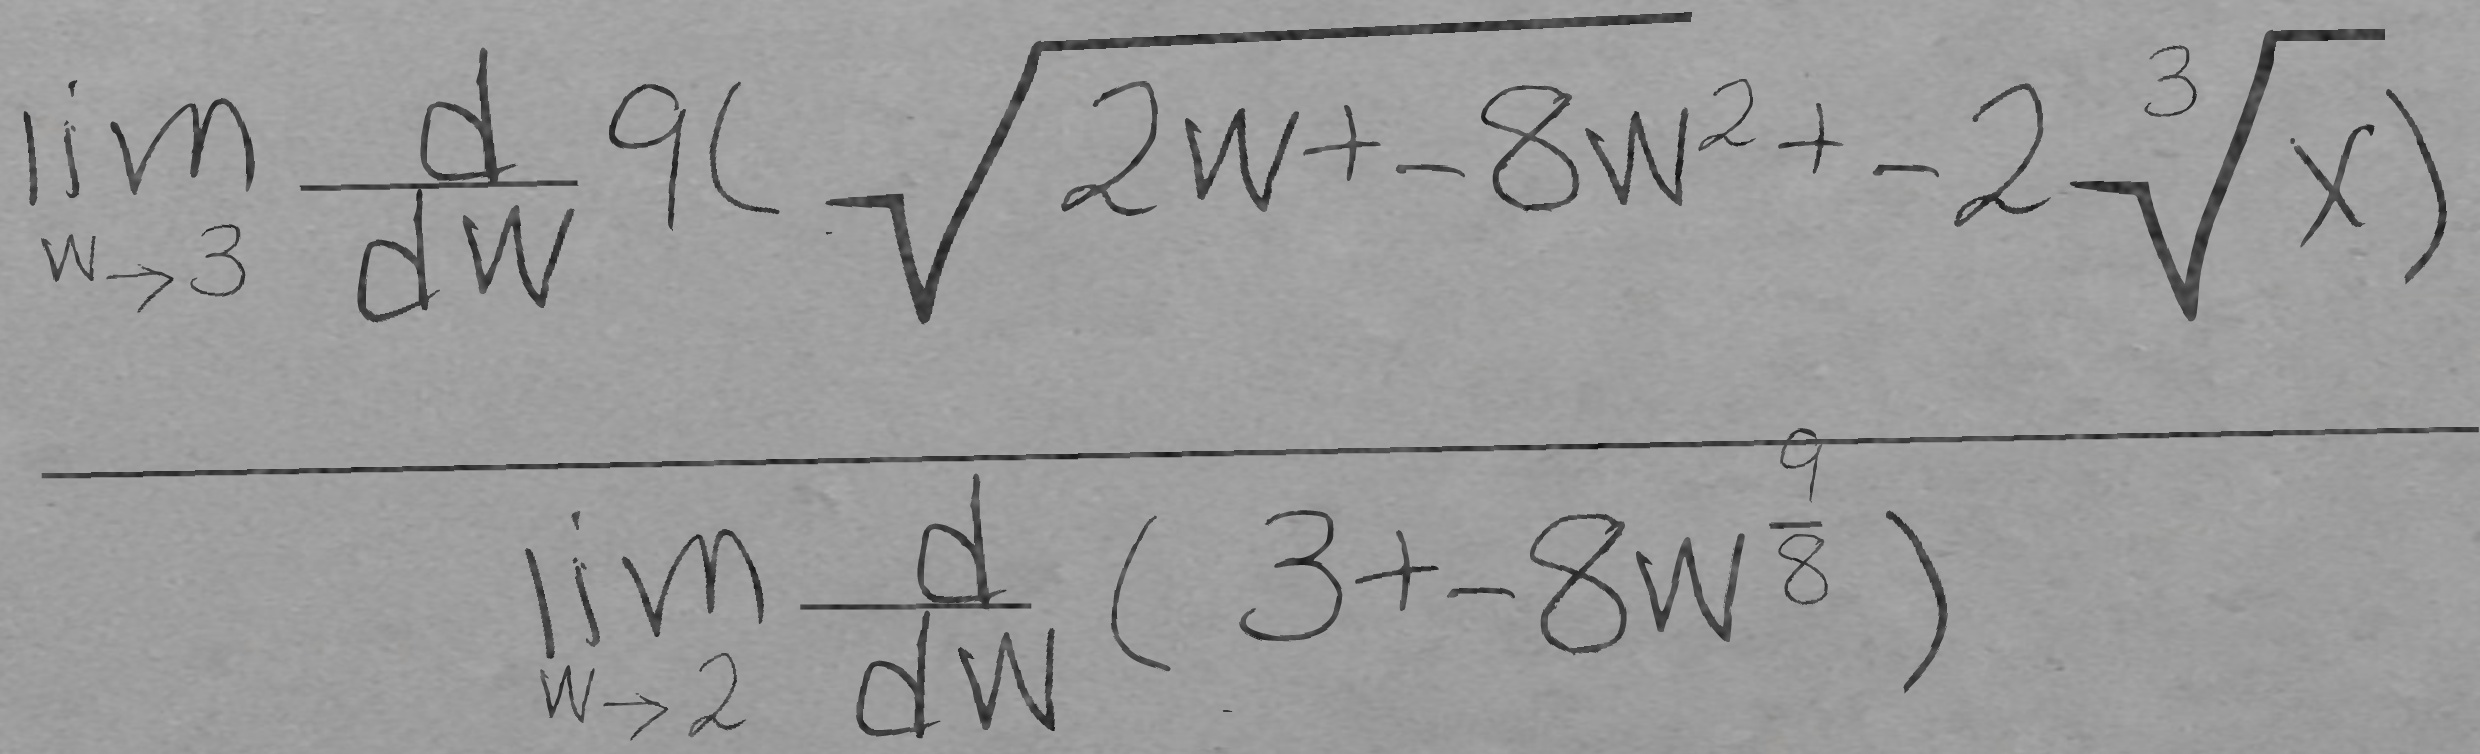 \frac{\lim_{w \to 3} \frac{d}{dw} 9(\sqrt{2w + -8w^2} + -2\sqrt[3]{x})}{\lim_{w \to 2} \frac{d}{dw} (3 + -8w^{\frac{9}{8}})}